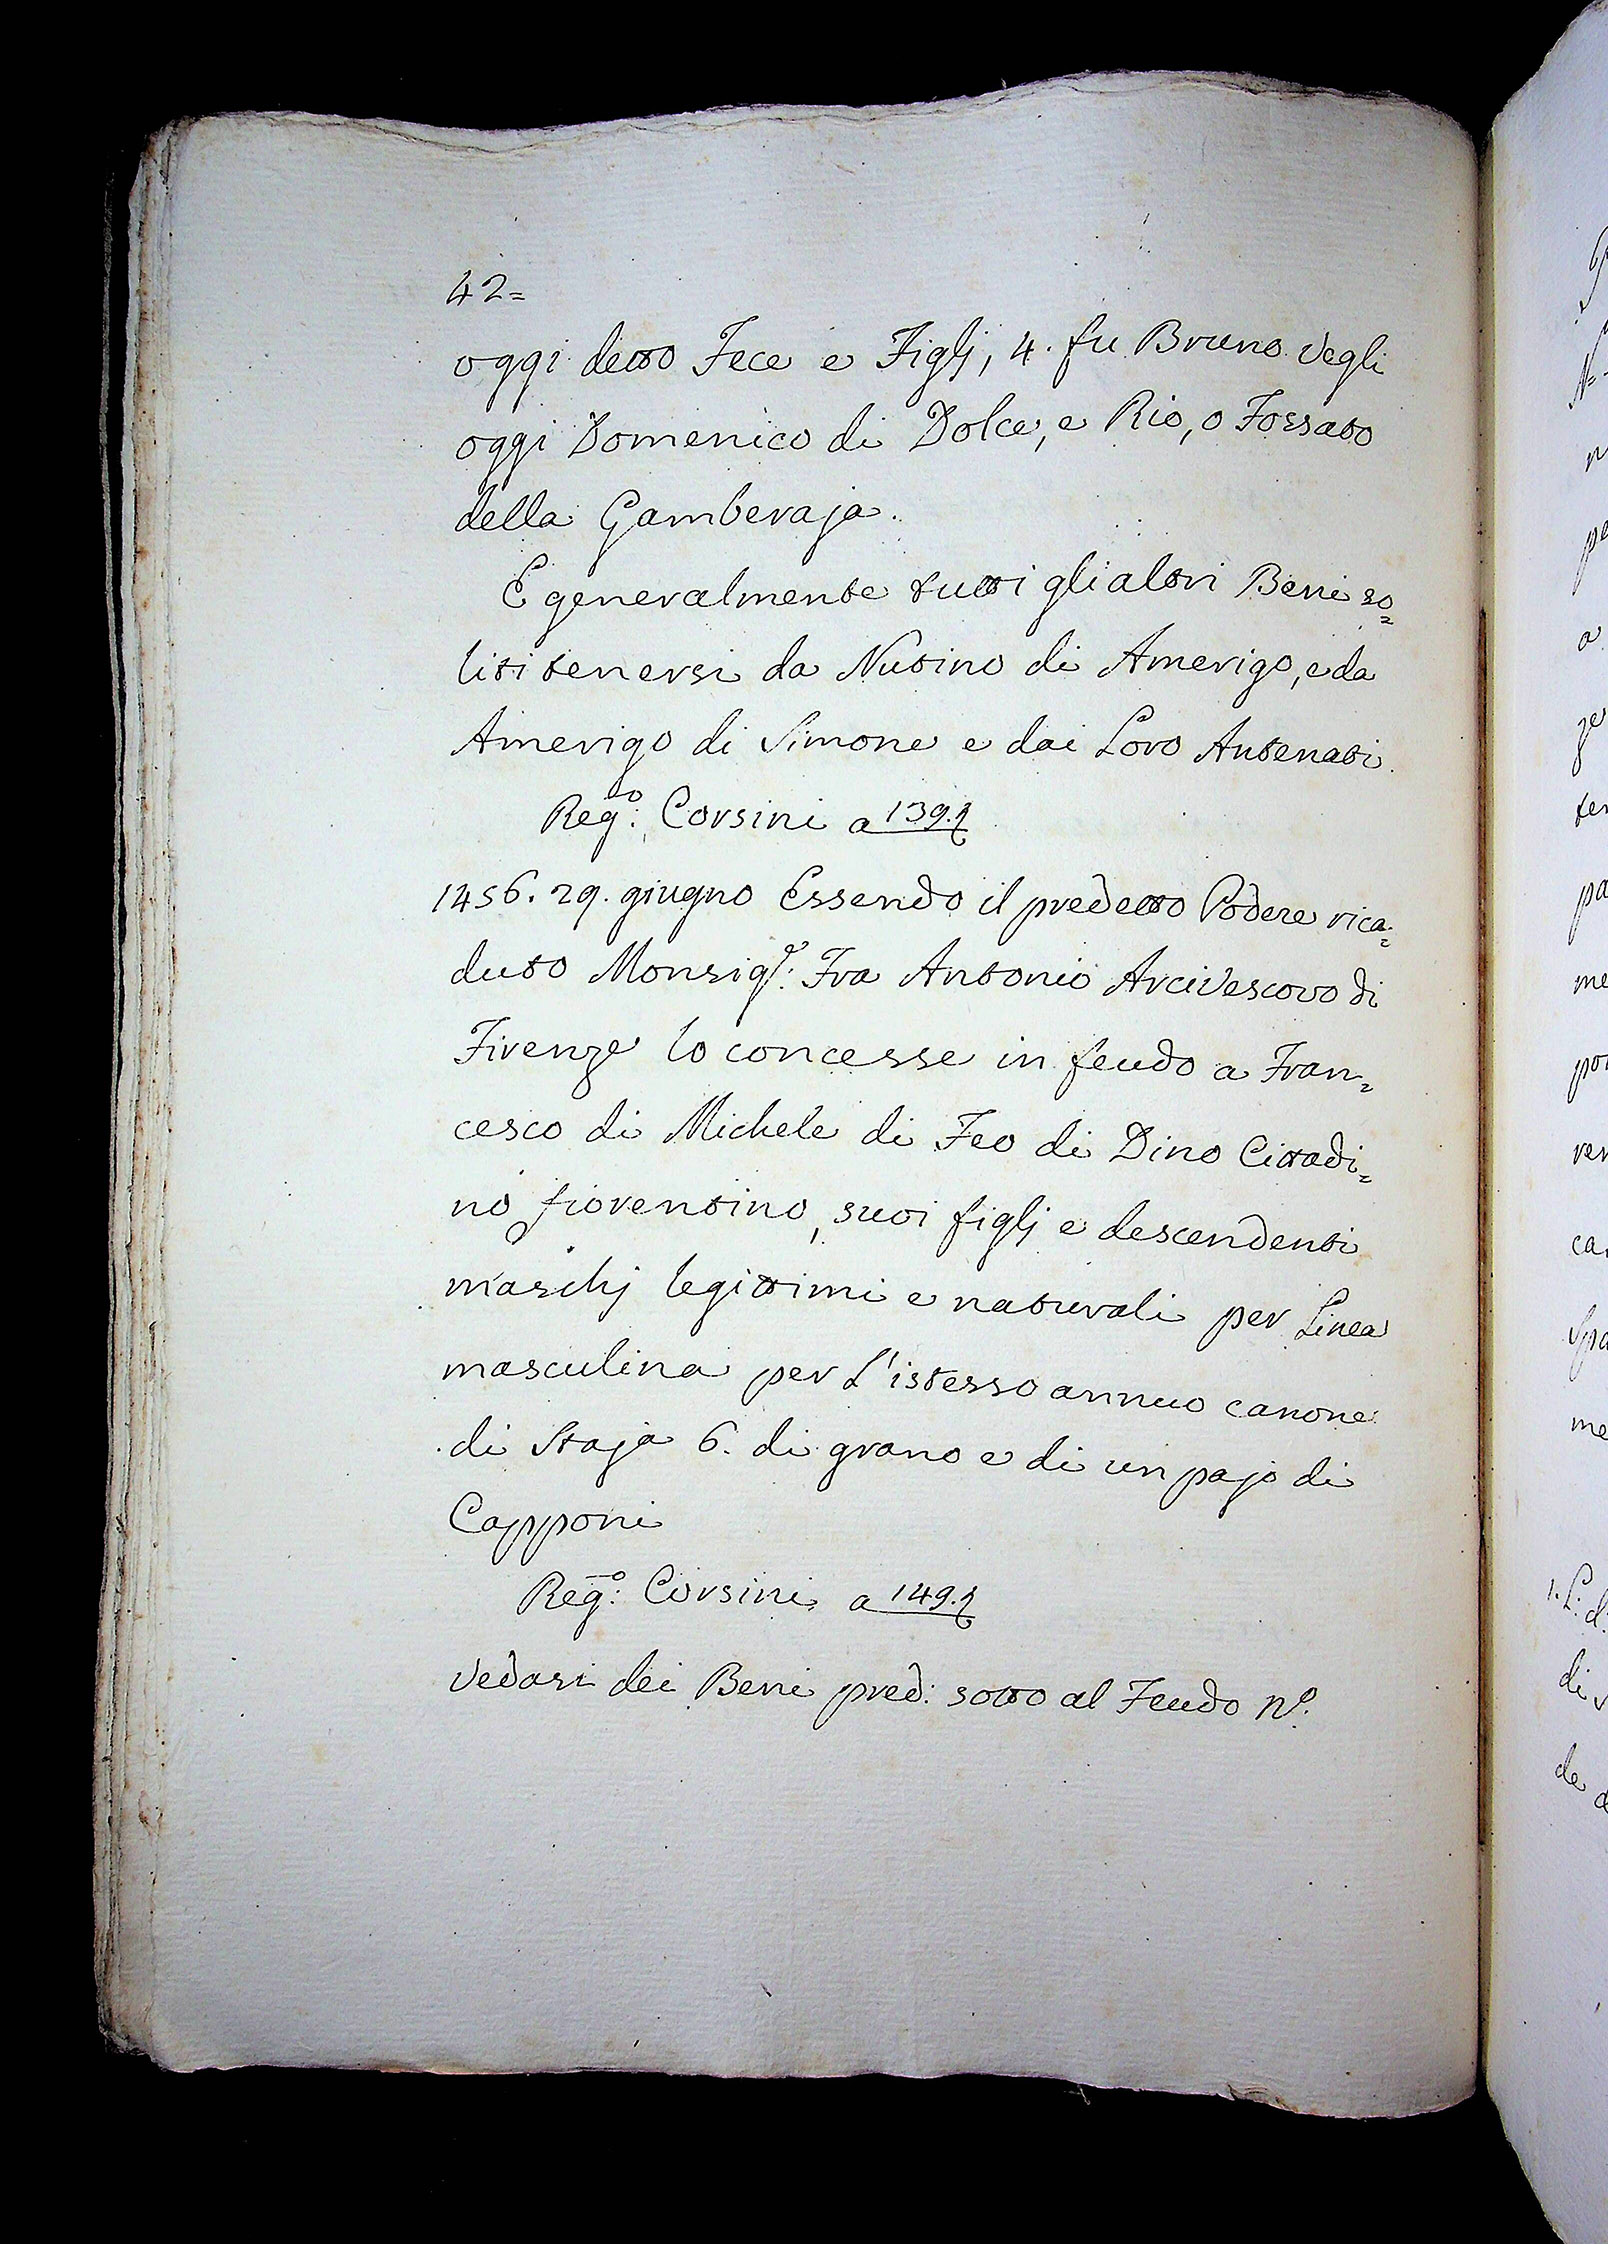 42=
oggi detto Fece e Figlj, 4. fu Bruno Vegli
oggi Domenico di Dolce, e Rio, o Fossato
della Gamberaja.
E generalmente tutti gli altri Beni so=
liti tenersi da Nutino di Amerigo, e da
Amerigo di Simone e dai Loro Antenati
Reg.º: Corsini a 139.
1456. 29. giugno Essendo il predetto Podere rica=
duto Monsig.r: Fra Antonio Arcivescovo di
Firenze lo concesse in feudo a Fran=
cesco di Michele di Feo di Dino Cittadi=
no fiorentino, suoi figlj e descendenti
maschj legittimi e naturali per Linea
masculina per l'istesso annuo canone
di Staja 6. di grano e di un pajo di
Capponi
Reg.º: Corsini a 149.
Vedasi dei Beni pred: sotto al Feudo N.º